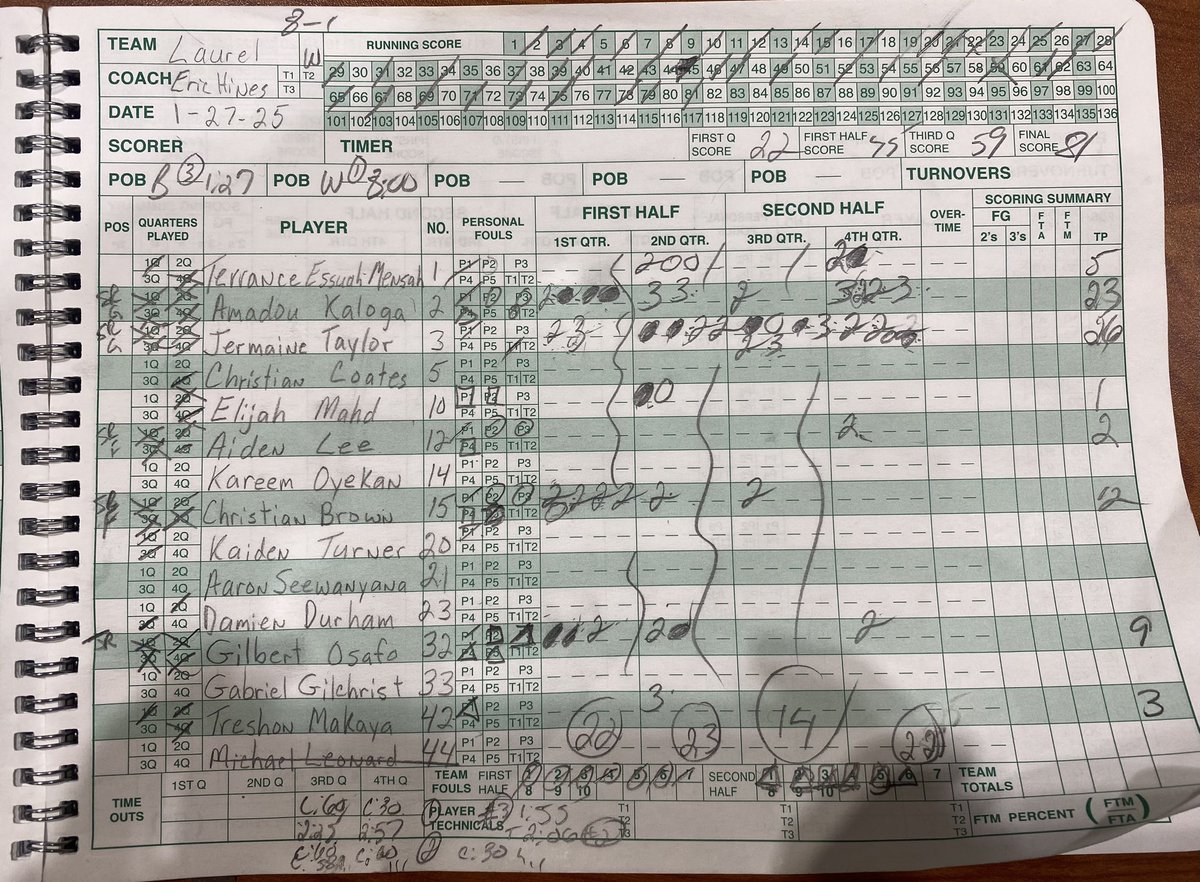 8-1
TEAM Laurel W RUNNING SCORE 1 2 3 4 5 6 7 8 9 10 11 12 13 14 15 16 17 18 19 20 21 22 23 24 25 26 27 28
COACH Eric Hines T1 T2 T3 29 30 31 32 33 34 35 36 37 38 39 40 41 42 43 44 45 46 47 48 49 50 51 52 53 54 55 56 57 58 59 60 61 62 63 64
65 66 67 68 69 70 71 72 73 74 75 76 77 78 79 80 81 82 83 84 85 86 87 88 89 90 91 92 93 94 95 96 97 98 99 100
DATE 1-27-25 101 102 103 104 105 106 107 108 109 110 111 112 113 114 115 116 117 118 119 120 121 122 123 124 125 126 127 128 129 130 131 132 133 134 135 136
SCORER TIMER FIRST Q SCORE 22 FIRST HALF SCORE 45 THIRD Q SCORE 59 FINAL SCORE 81
POB B 3 1:27 POB W 1 8:00 POB — POB — POB — TURNOVERS
POS QUARTERS PLAYED PLAYER NO. PERSONAL FOULS FIRST HALF SECOND HALF OVER-TIME SCORING SUMMARY
1ST QTR. 2ND QTR. 3RD QTR. 4TH QTR. FG 2's 3's FTA FTM TP
1Q 2Q 3Q 4Q Terrance Essuah-Mensah 1 P1 P2 P3 P4 P5 T1 T2 200 2 5
1Q 2Q 3Q 4Q Amadou Kaloga 2 P1 P2 P3 P4 P5 T1 T2 2 33 2 3223 23
1Q 2Q 3Q 4Q Jermaine Taylor 3 P1 P2 P3 P4 P5 T1 T2 23 22 23 26
1Q 2Q 3Q 4Q Christian Coates 5 P1 P2 P3 P4 P5 T1 T2
1Q 2Q 3Q 4Q Elijah Mahd 10 P1 P2 P3 P4 P5 T1 T2 0 1
1Q 2Q 3Q 4Q Aiden Lee 12 P1 P2 P3 P4 P5 T1 T2 2 2
1Q 2Q 3Q 4Q Kareem Oyekan 14 P1 P2 P3 P4 P5 T1 T2
1Q 2Q 3Q 4Q Christian Brown 15 P1 P2 P3 P4 P5 T1 T2 2222 2 2 12
1Q 2Q 3Q 4Q Kaiden Turner 20 P1 P2 P3 P4 P5 T1 T2
1Q 2Q 3Q 4Q Aaron Seewanyana 21 P1 P2 P3 P4 P5 T1 T2
1Q 2Q 3Q 4Q Damien Durham 23 P1 P2 P3 P4 P5 T1 T2
1Q 2Q 3Q 4Q Gilbert Osafo 32 P1 P2 P3 P4 P5 T1 T2 2 2 2 9
1Q 2Q 3Q 4Q Gabriel Gilchrist 33 P1 P2 P3 P4 P5 T1 T2
1Q 2Q 3Q 4Q Treshon Makaya 42 P1 P2 P3 P4 P5 T1 T2 3 3
1Q 2Q 3Q 4Q Michael Leonard 44 P1 P2 P3 P4 P5 T1 T2 22 23 14 22
TIME OUTS 1ST Q 2ND Q 3RD Q 4TH Q TEAM FOULS FIRST HALF 1 2 3 4 5 6 7 8 9 10 SECOND HALF 1 2 3 4 5 6 7 8 9 10 TEAM TOTALS
C:60 C:30 PLAYER TECHNICALS #3 1:55 T1 T2 T3 T1 T2 T3 T1 T2 T3 FTM PERCENT (FTM/FTA)
2:25 2:57 T 2:06
C:60 C:30 2 C:30